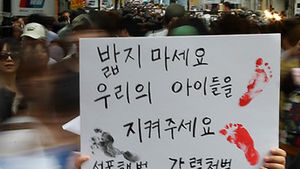 밟지 마세요
우리의 아이들을
지켜주세요
성폭행범 강력처벌